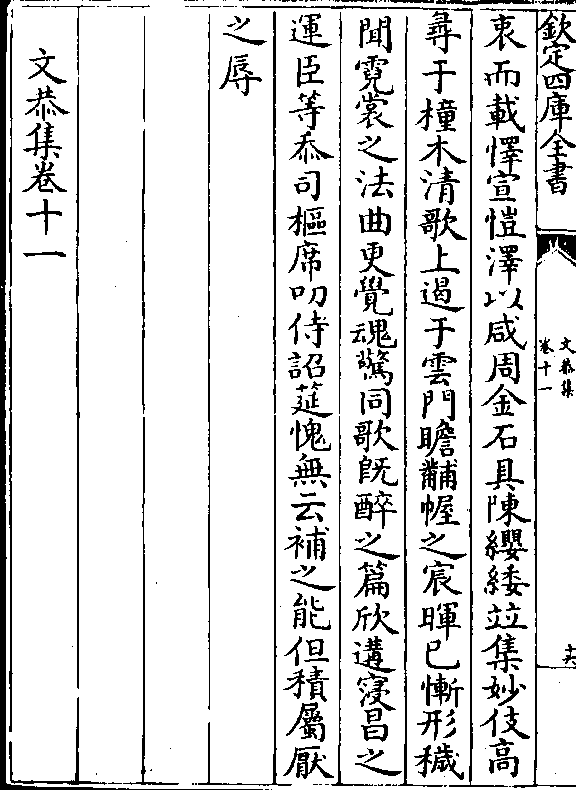 欽定四庫全書
文恭集
卷十一
十六
衷而載懌宣愷澤以咸周金石具陳纓緌竝集妙伎高
㝷于橦木清歌上遏于雲門瞻黼幄之宸暉已慚形穢
聞霓裳之法曲更覺魂驚同歌旣醉之篇欣遘寖昌之
運臣等忝司樞席叨侍詔筵愧無云補之能但積屬厭
之辱
文恭集卷十一